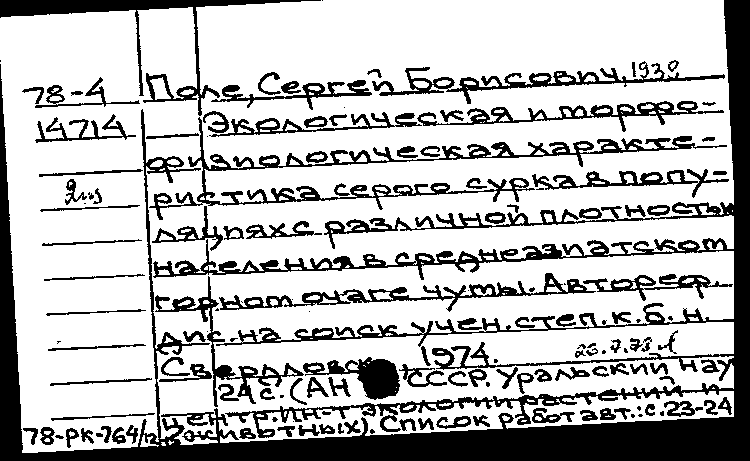 78-4 Поле, Сергей Борисович, 1930
14714 Экологическая и морфо-
физиологическая характе-
2экз ристика серого сурка в попу-
ляциях с различной плотностью
населения в среднеазиатском
горном очаге чумы. Автореф.
дис. на соиск учен. степ. к. б. н.
Свердловск, 1974. 26.7.78
24 с. (АН СССР. Уральский науч
центр. ин-т экологии растений и
78-РК-764/12 животных). Список работ авт.: с. 23-24